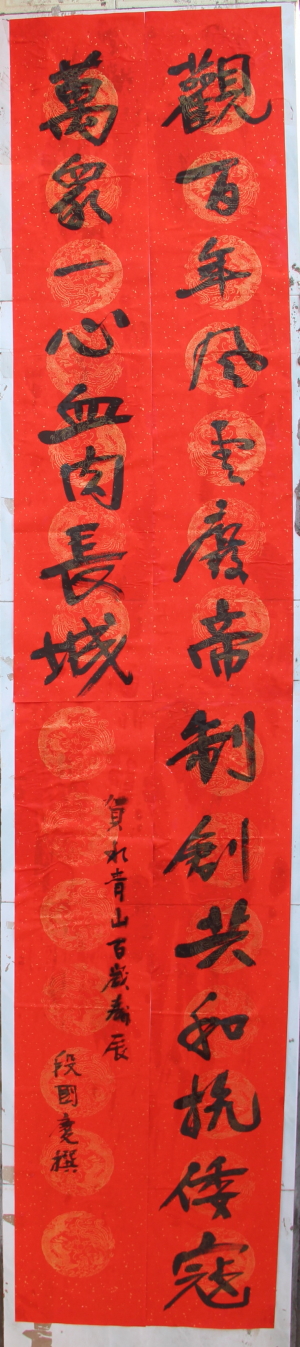 觀百年风雲廢帝制創共和抗倭寇
萬眾一心血肉長城
賀青山百歲壽辰
段國慶撰